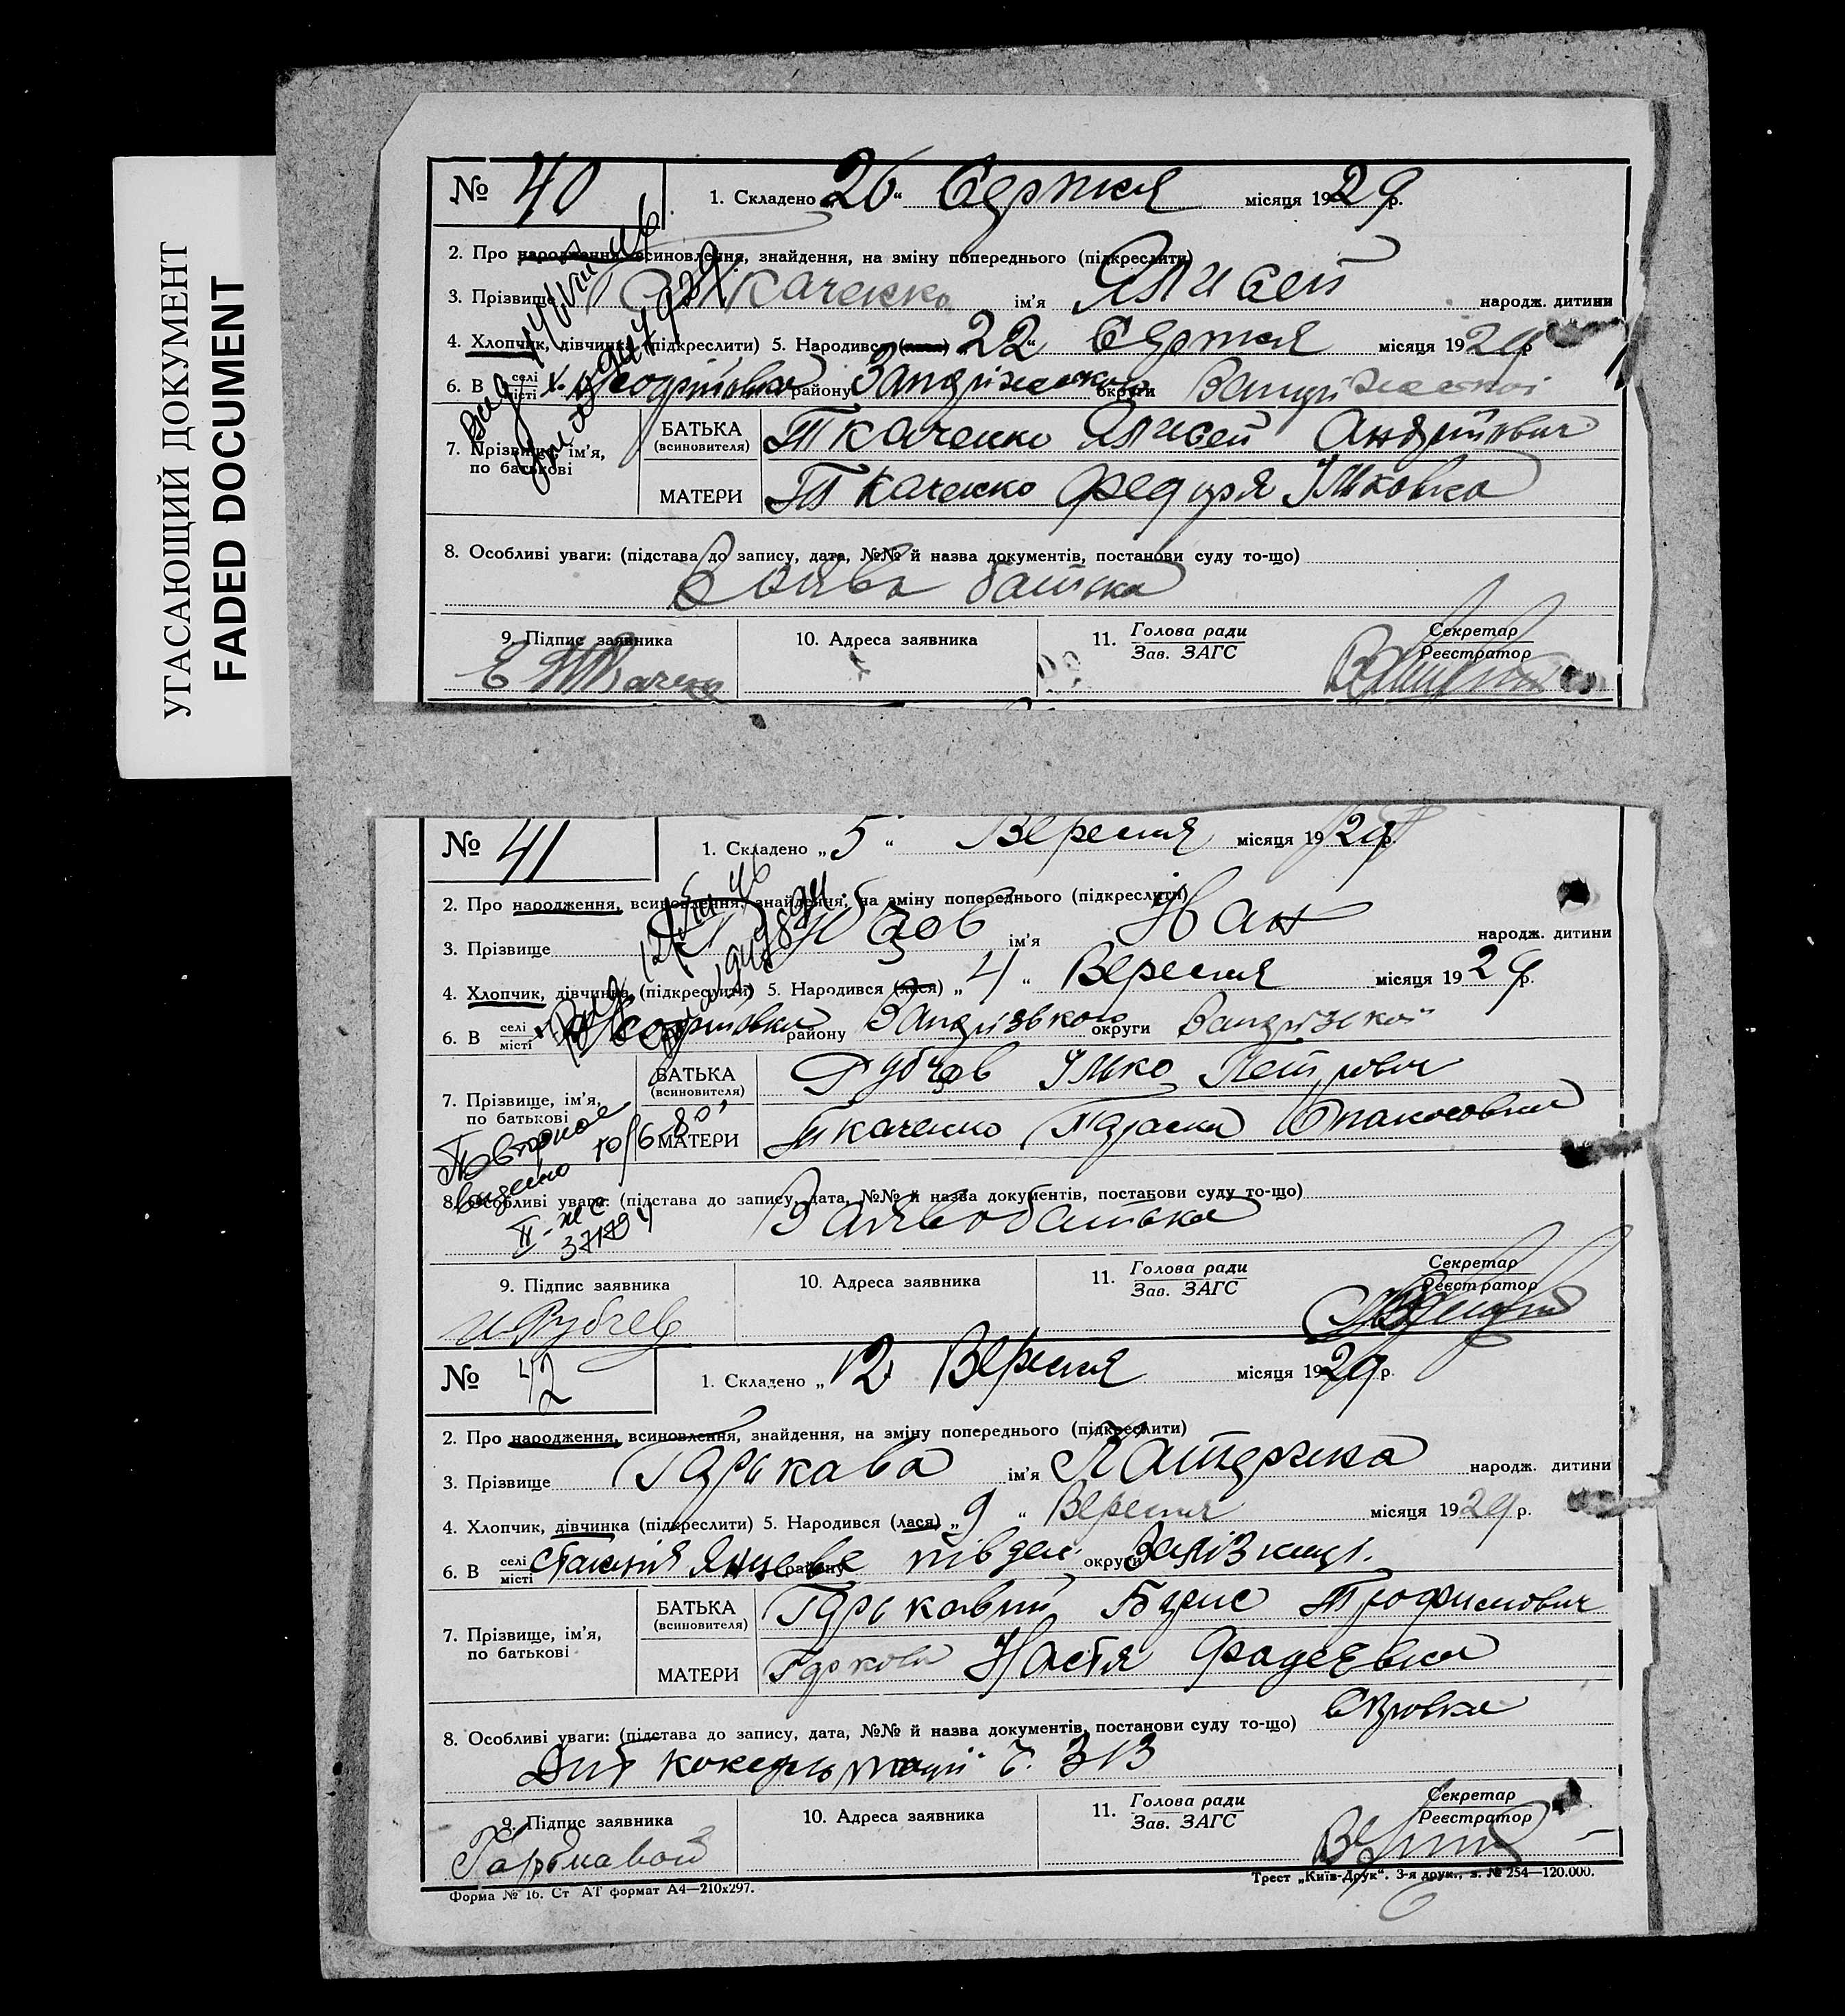 УГАСАЮЩИЙ ДОКУМЕНТ
FADED DOCUMENT
№ 40
1. Складено „26“ Серпня місяця 1929 р.
2. Про народження, всиновлення, знайдення, на зміну попереднього (підкреслити)
3. Прізвище Ткаченко ім'я Ялисей народж. дитини
4. Хлопчик, дівчинка (підкреслити) 5. Народився (лася) „22“ Серпня місяця 1929 р.
6. В селі місті х. району Запорізького округи Запорізької
7. Прізвище, ім'я, по батькові
БАТЬКА (всиновителя) Ткаченко Ялисей Андрійович
МАТЕРИ Ткаченко Федора Ільковна
8. Особливі уваги: (підстава до запису, дата, №№ й назва документів, постанови суду то-що)
Заява батька
9. Підпис заявника
10. Адреса заявника
11. Голова ради
Зав. ЗАГС
Секретар
Реєстратор
Е Ткаченко
№ 41
1. Складено „5“ Вересня місяця 1929 р.
2. Про народження, всиновлення, знайдення, на зміну попереднього (підкреслити)
3. Прізвище Рубцов ім'я Іван народж. дитини
4. Хлопчик, дівчинка (підкреслити) 5. Народився (лася) „4“ Вересня місяця 1929 р.
6. В селі місті х. району Запорізького округи Запорізької
7. Прізвище, ім'я, по батькові
БАТЬКА (всиновителя) Рубцов Ілько Петрович
МАТЕРИ Ткаченко Параска Опанасовна
Повторное
видано 10/6-80
II-ЖС
371794
8. Особливі уваги: (підстава до запису, дата, №№ й назва документів, постанови суду то-що)
Заява батька
9. Підпис заявника
10. Адреса заявника
11. Голова ради
Зав. ЗАГС
Секретар
Реєстратор
И Рубцев
№ 42
1. Складено „12 Вересня місяця 1929 р.
2. Про народження, всиновлення, знайдення, на зміну попереднього (підкреслити)
3. Прізвище Горькава ім'я Катерина народж. дитини
4. Хлопчик, дівчинка (підкреслити) 5. Народився (лася) „9“ Вересня місяця 1929 р.
6. В селі місті Станція Янцеве району півден. округи Залізниці.
7. Прізвище, ім'я, по батькові
БАТЬКА (всиновителя) Горькавий Борис Трофимович
МАТЕРИ Горкова Настя Фадеевна
8. Особливі уваги: (підстава до запису, дата, №№ й назва документів, постанови суду то-що)
Ч. 313
9. Підпис заявника
10. Адреса заявника
11. Голова ради
Зав. ЗАГС
Секретар
Реєстратор
Форма № 16. Ст АТ формат А4—210х297.
Трест „Київ-Друк“. 3-я друк., з. № 254—120.000.